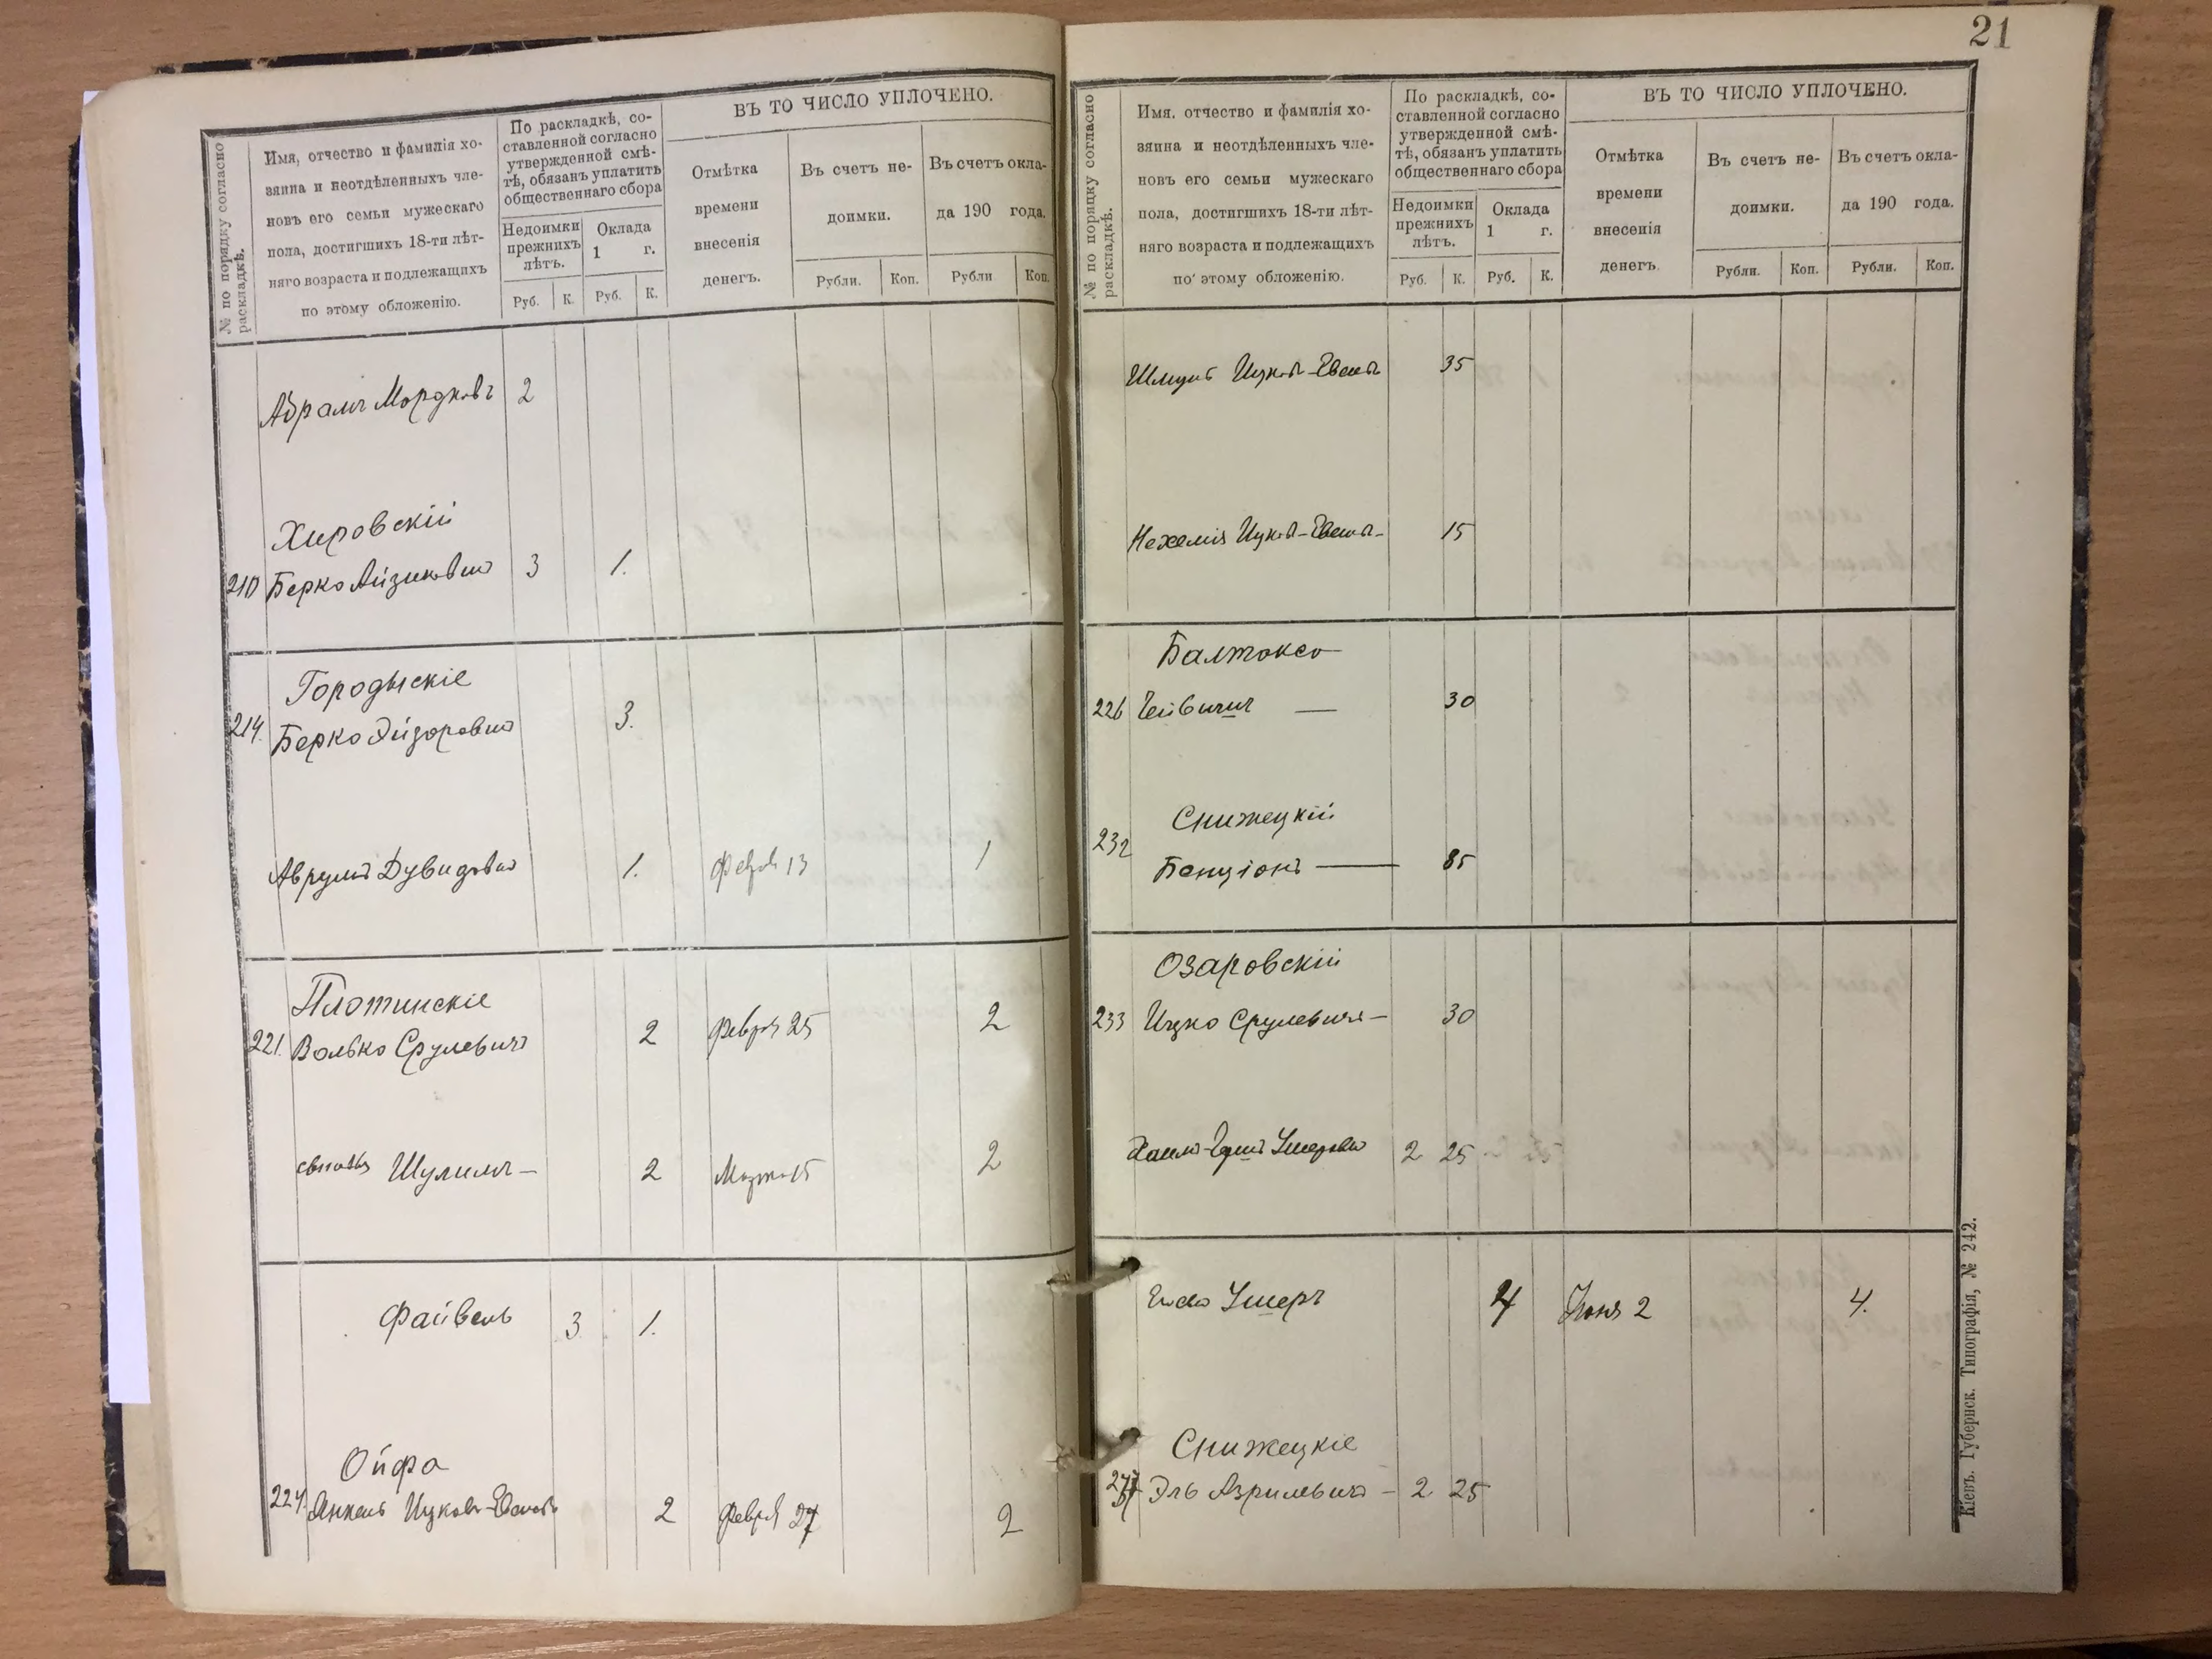 № по порядку согласно
раскладкѣ.
Имя, отчество и фамилія хо-
зяина и неотдѣленныхъ чле-
новъ его семьи мужескаго
пола, достигшихъ 18-ти лѣт-
няго возраста и подлежащихъ
по этому обложенію.
По раскладкѣ, со-
ставленной согласно
утвержденной смѣ-
тѣ, обязанъ уплатить
общественнаго сбора
Недоимки
прежнихъ
лѣтъ.
Оклада
1 г.
Руб. К. Руб. К.
ВЪ ТО ЧИСЛО УПЛОЧЕНО.
Отмѣтка
времени
внесенія
денегъ.
Въ счетъ не-
доимки.
Въ счетъ окла-
да 190 года.
Рубли. Коп. Рубли Коп.
Абрамъ Мордковъ 2
Хировскій
210 Берко Айзиковъ 3 1.
Городыскіе
214. Берко 3.
Аврумъ Дувидовъ 1. Февр 13 1
Плотинскіе
221. Волько Срулевичъ 2 Февр 25 2
Шулимъ — 2 Марта 15 2
Файвель 3 1.
Ойфа
224. Янкель Ицковъ 2 Февр 27 2
21
№ по порядку согласно
раскладкѣ.
Имя. отчество и фамилія хо-
зяина и неотдѣленныхъ чле-
новъ его семьи мужескаго
пола, достигшихъ 18-ти лѣт-
няго возраста и подлежащихъ
по этому обложенію.
По раскладкѣ, со-
ставленной согласно
утвержденной смѣ-
тѣ, обязанъ уплатить
общественнаго сбора
Недоимки
прежнихъ
лѣтъ.
Оклада
1 г.
Руб. К. Руб. К.
ВЪ ТО ЧИСЛО УПЛОЧЕНО.
Отмѣтка
времени
внесенія
денегъ.
Въ счетъ не-
доимки.
Въ счетъ окла-
да 190 года.
Рубли. Коп. Рубли. Коп.
Шмулъ 35
Нехемія 15
Балтоксо
226 — 30
Снижецкій
232 Бенціонъ — 85
Озаровскій
233 Ицко Срулевичъ — 30
2 25
Ушеръ 4 Іюня 2 4.
Снижецкіе
Эль Азрилевичъ — 2 25
Кіевъ. Губернск. Типографія, № 242.